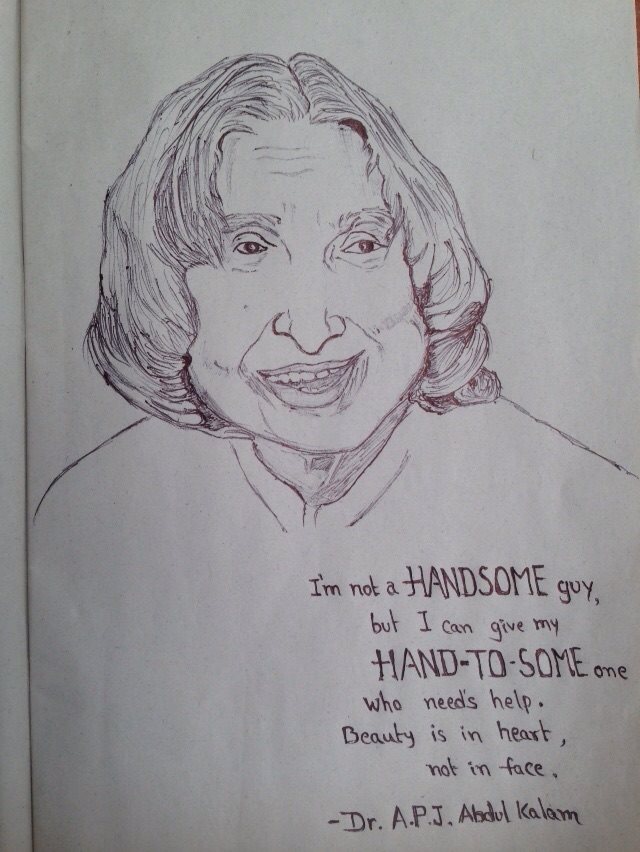 I'm not a HANDSOME guy,
but I can give my
HAND-TO-SOME one
who need's help.
Beauty is in heart,
not in face.
-Dr. A.P.J. Abdul Kalam